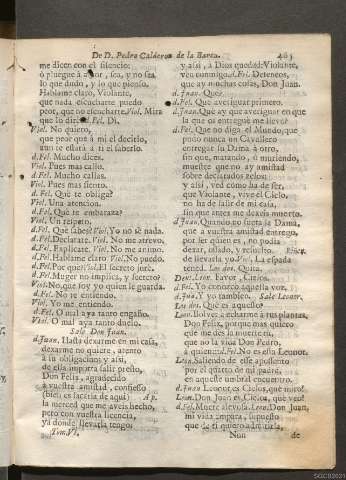 De D. Pedro Calderon de la Barca. 465
me dicen con el silencio:
ò pluegue à amor, sea, y no sea
lo que dudo, y lo que pienso.
Hablame claro, Violante,
que nada escucharte puedo
peor, que no escucharte. Viol. Mira
que lo diré. d.Fel. Di.
Viol. No quiero,
que peor què à mi el decirlo,
aun te estarà à ti el saberlo.
d.Fel. Mucho dices.
Viol. Pues mas callo.
d.Fel. Mucho callas.
Viol. Pues mas siento.
d.Fel. Què te obliga?
Viol. Una atencion.
d.Fel. Què te embaraza?
Viol. Un respeto.
d.Fel. Què sabes? Viol. Yo no sé nada.
d.Fel. Declarate. Viol. No me atrevo.
d.Fel. Explicate. Viol. No me animo.
d.Fel. Hablame claro Viol. No puedo.
d.Fel. Por què? Viol. El secreto jurè.
d.Fel. Muger no implica, y secreto?
Viol. No, que soy yo quien le guarda.
d.Fel. No te entiendo.
Viol. Yo me entiendo.
d.Fel. O mal aya tanto engaño.
Viol. O mal aya tanto duelo.
Sale Don Juan.
d.Juan. Hasta dexarme en mi casa,
dexarme no quiere, atento
à su obligacion; y asi,
de ella importa salir presto,
Don Felix, agradecido
à vuestra amistad, confieso
(bien es facaria de aqui) Ap.
la merced que me aveis hecho,
pero con vuestra licencia,
yà donde llevarla tengo:
Tom. VI.
y asi, à Dios quedad: Violante,
ven conmigo. d.Fel. Deteneos,
que ay muchas cosas, Don Juan.
d.Juan. Què?
d.Fel. Que averiguar primero.
d.Juan. Què ay que averiguar en que
la que os entreguè me lleve?
d.Fel. Que no diga el Mundo, que
pudo nunca un Cavallero
entregar la Dama à otro,
sin que, matando, ù muriendo,
muestre que no ay amistad
sobre declarados zelos:
y asi, ved còmo ha de ser,
que Violante, vive el Cielo,
no ha de salir de mi casa,
sin que antes me dexeis muerto.
d.Juan. Quando no fuera la Dama,
que à vuestra amistad entrego,
por ser quien es, no podia
dexar, osado, y resuelto,
de llevarla yo. Viol. La espada
tened. Los dos. Quita.
Dent. Leon. Favor, Cielos.
d.Fel. Yo conozco aquella voz.
d.Jua. Y yo tambien. Sale Leonor.
Los dos. Què es aquesto?
Leon. Bolver à echarme à tus plantas,
Don Felix, porque mas quiero
que me dès la muerte tu,
que no la vida Don Pedro,
à quien d.Fel. No es esta Leonor.
Leon. Saliendo de esse aposento
por el quarto de mi padre,
en aqueste umbral encuentro.
d.Juan Leonor es Cielos, què miro!
Leon. Don Juan es, Cielos, què veo!
d.Fel. Muere alevosa. Leon. Don Juan,
mi vida ampara, supuesto
que de si quiero admitirla,
Nnn de